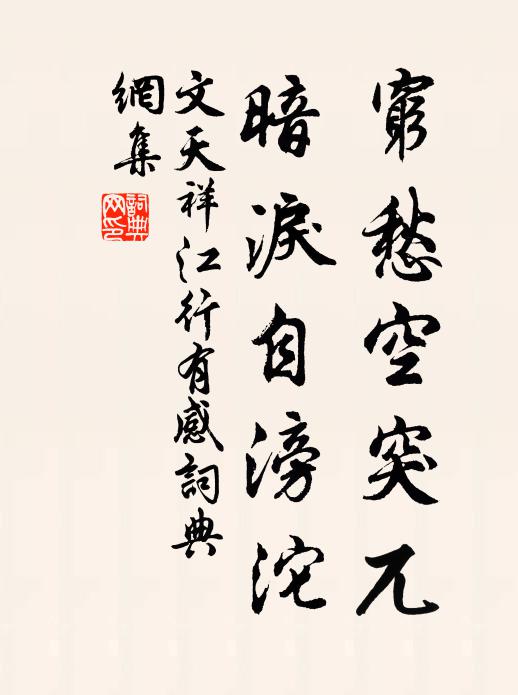 窮愁空突兀
暗淚自滂沱
文天祥江行有感詞典
網集
詞典
网印